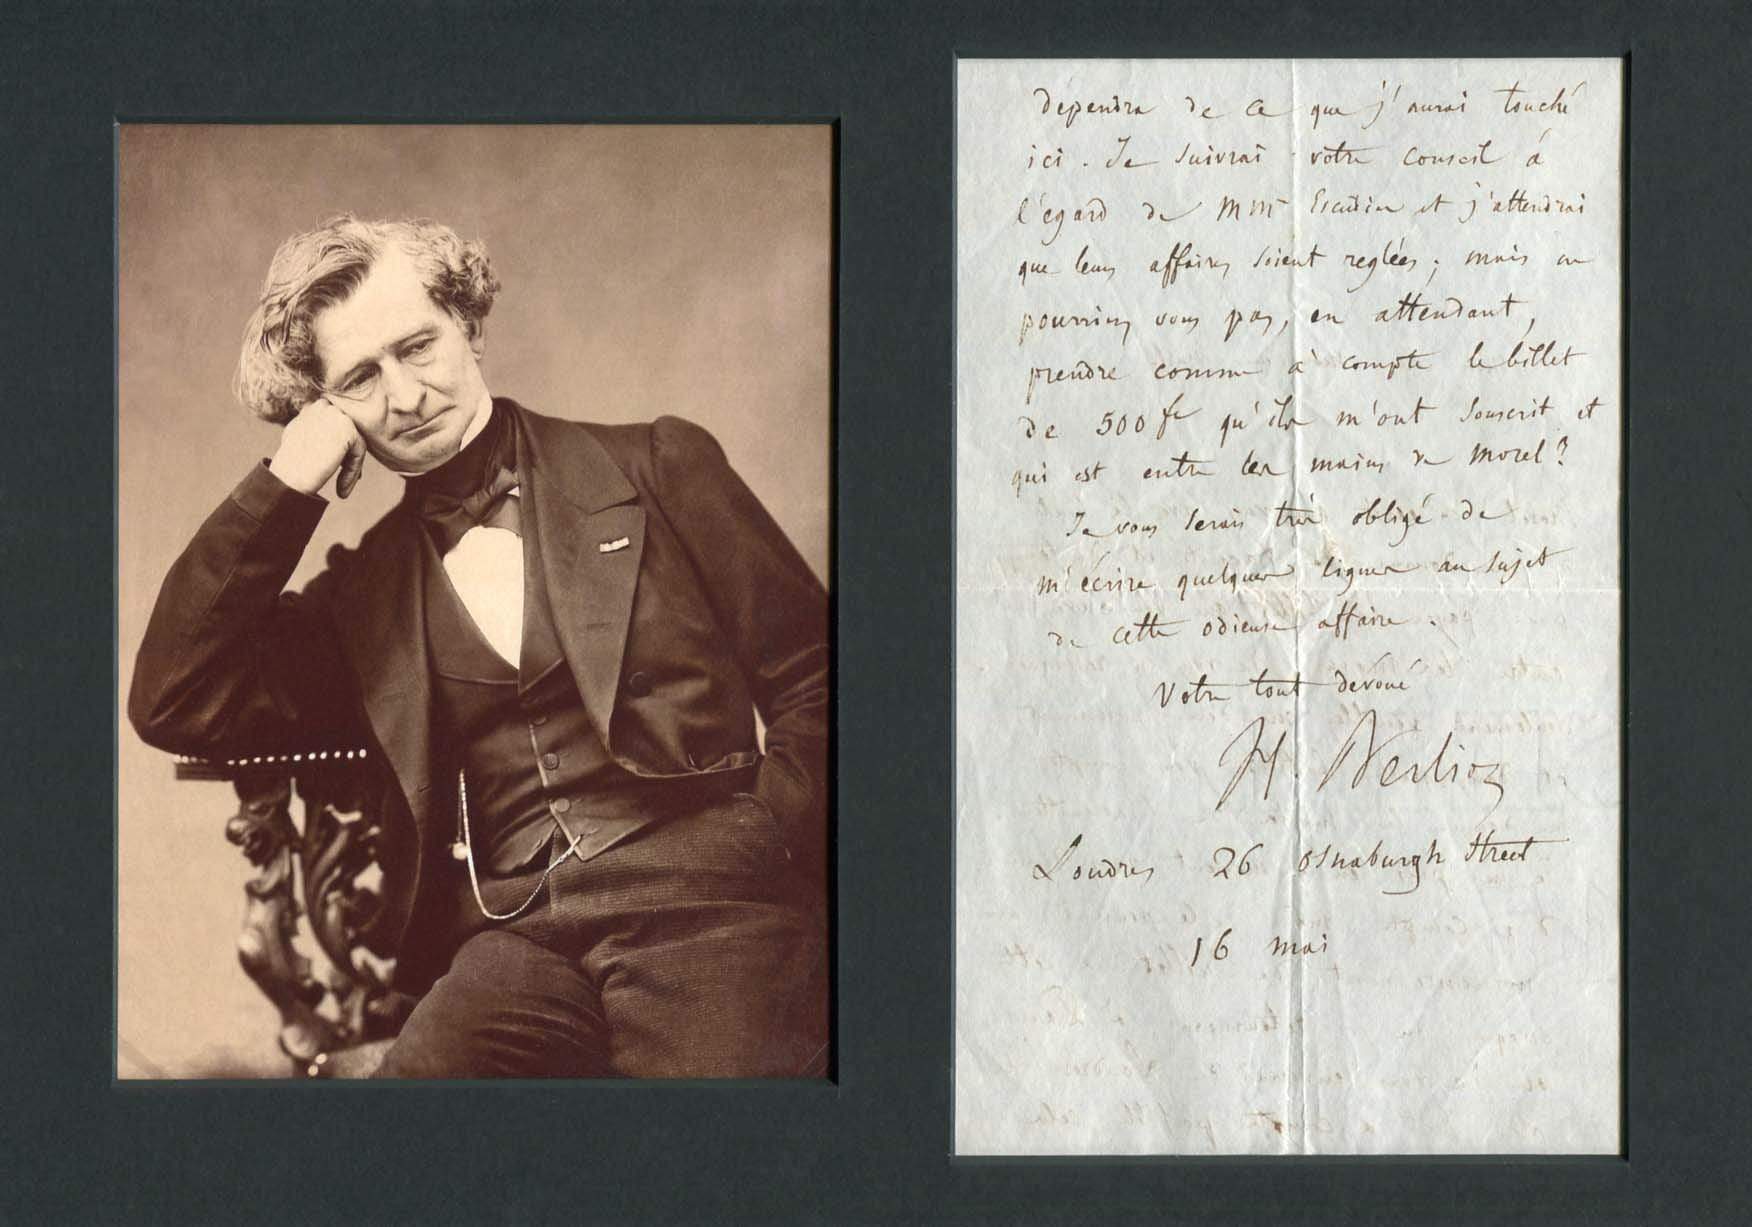 dépendra de ce que j'aurai touché
ici. Je suivrai votre conseil à
l'égard de MMrs Escudier et j'attendrai
que leurs affaires soient reglées; mais ne
pourriez vous pas, en attendant,
prendre comme à compte le billet
de 500 fr qu'ils m'ont souscrit et
qui est entre les mains de Morel?
Je vous serais très obligé de
m'écrire quelques lignes au sujet
de cette odieuse affaire.
Votre tout dévoué
H. Berlioz
Londres 26 Osnaburgh Street
16 mai